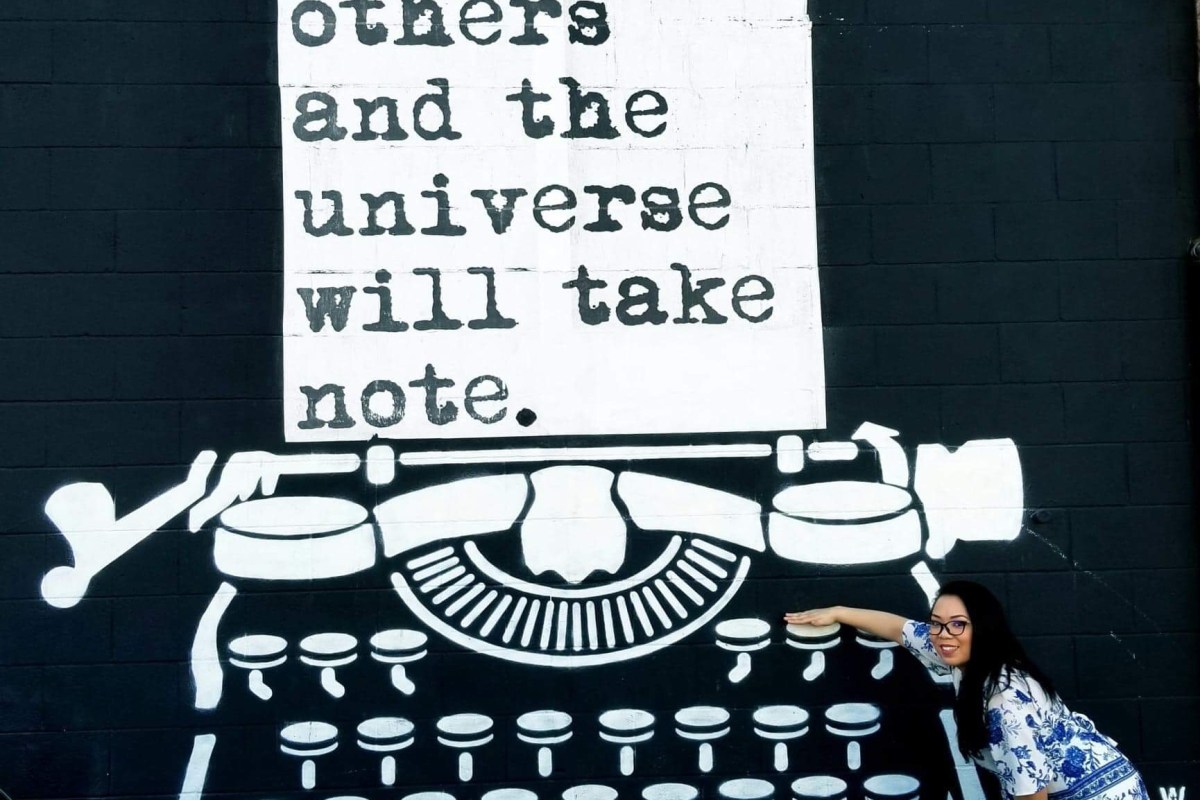 others
and the
universe
will take
note.
W